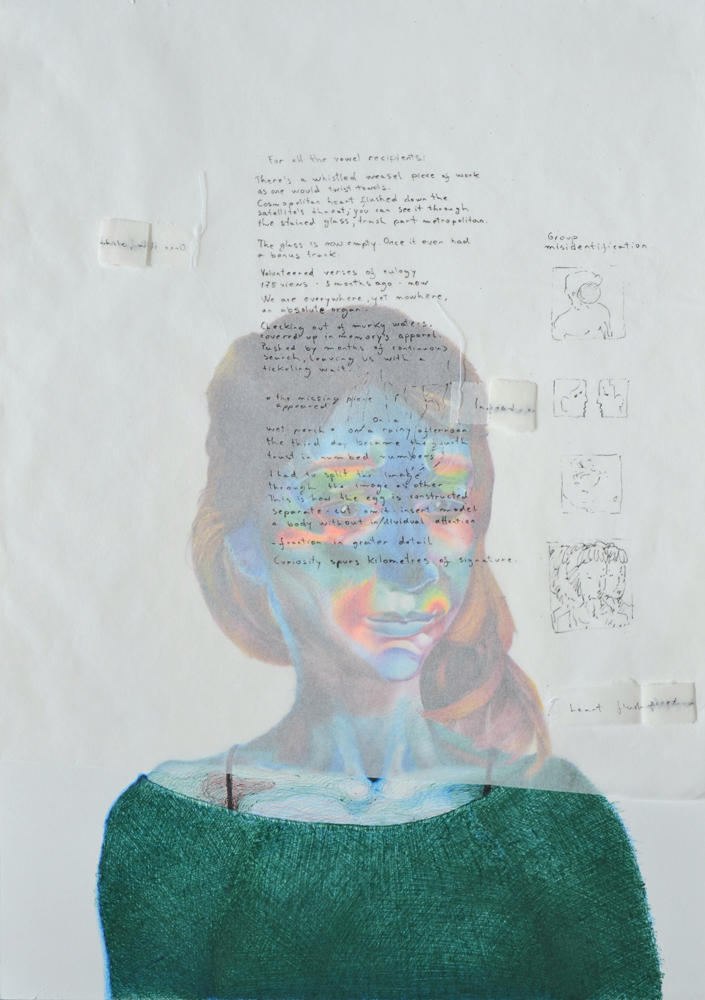 For all the vowel recipients:
There's a whistled weasel piece of work
as one would twist towels.
Cosmopolitan heart flushed down the
satellite's throat, you can see it through
the stained glass, trash part metropolitan.
The glass is now empty. Once it even had
a bonus track:
Volunteered verses of eulogy
175 views · 3 months ago · now
We are everywhere, yet nowhere,
an absolute organ.
Checking out of murky waters,
covered up in memory's apparel.
Pushed by months of continuous
search, leaving us with a
tickling wait
the missing piece
appeared
On a
wet perch on a rainy afternoon
the third day became the fourth
trust in numbed numbers
I had to split the image
through the image as other
This is how the egg is constructed
separate cut omit insert model
a body without in/dividual attention
-fraction in grater detail
Curiosity spurs kilometres of signature.
Group
misidentification
heart